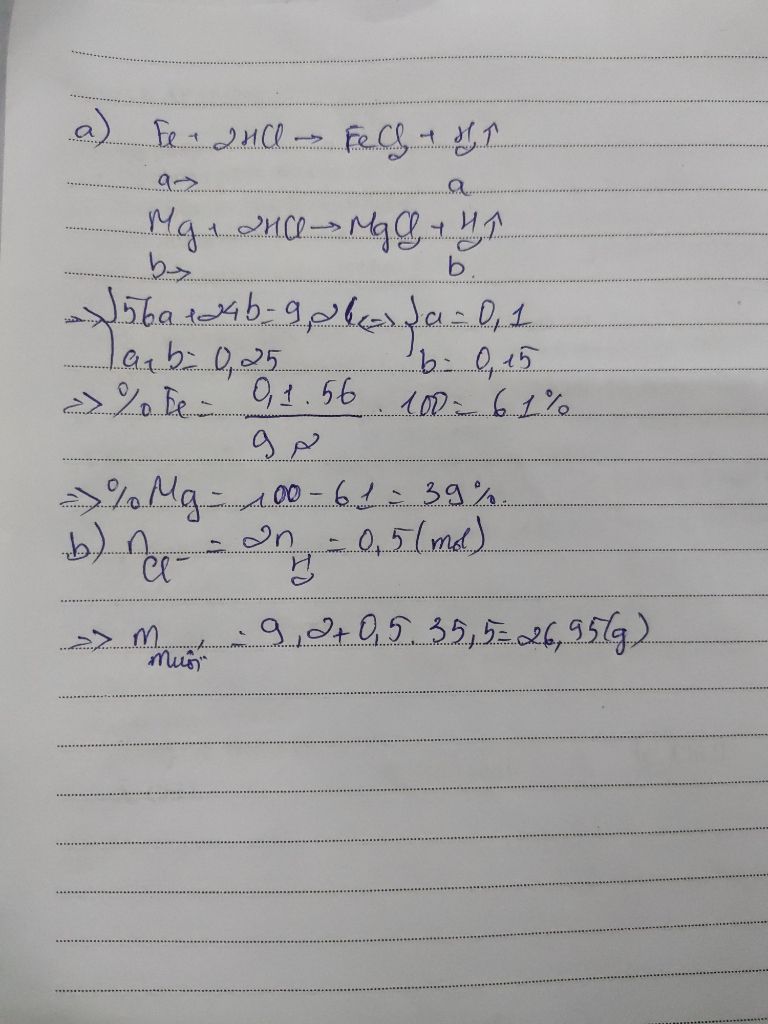 a) Fe + 2HCl → FeCl₂ + H₂↑
a→ a
Mg + 2HCl → MgCl₂ + H₂↑
b→ b.
=> { 56a + 24b = 9,2 <=> { a = 0,1
a + b = 0,25 b = 0,15
=> % Fe = 0,1 . 56 / 9,2 . 100 = 61%
=> % Mg = 100 - 61 = 39%.
b) n Cl⁻ = 2n H₂ = 0,5 (mol)
=> m muối = 9,2 + 0,5 . 35,5 = 26,95 (g)